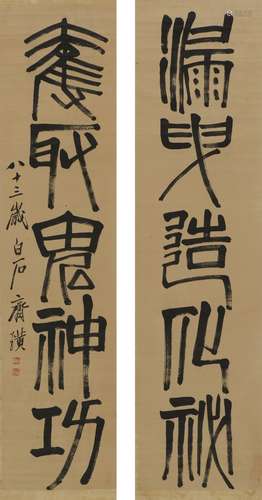 漏曳造化祕
奪取鬼神功
八十三歲白石齊璜